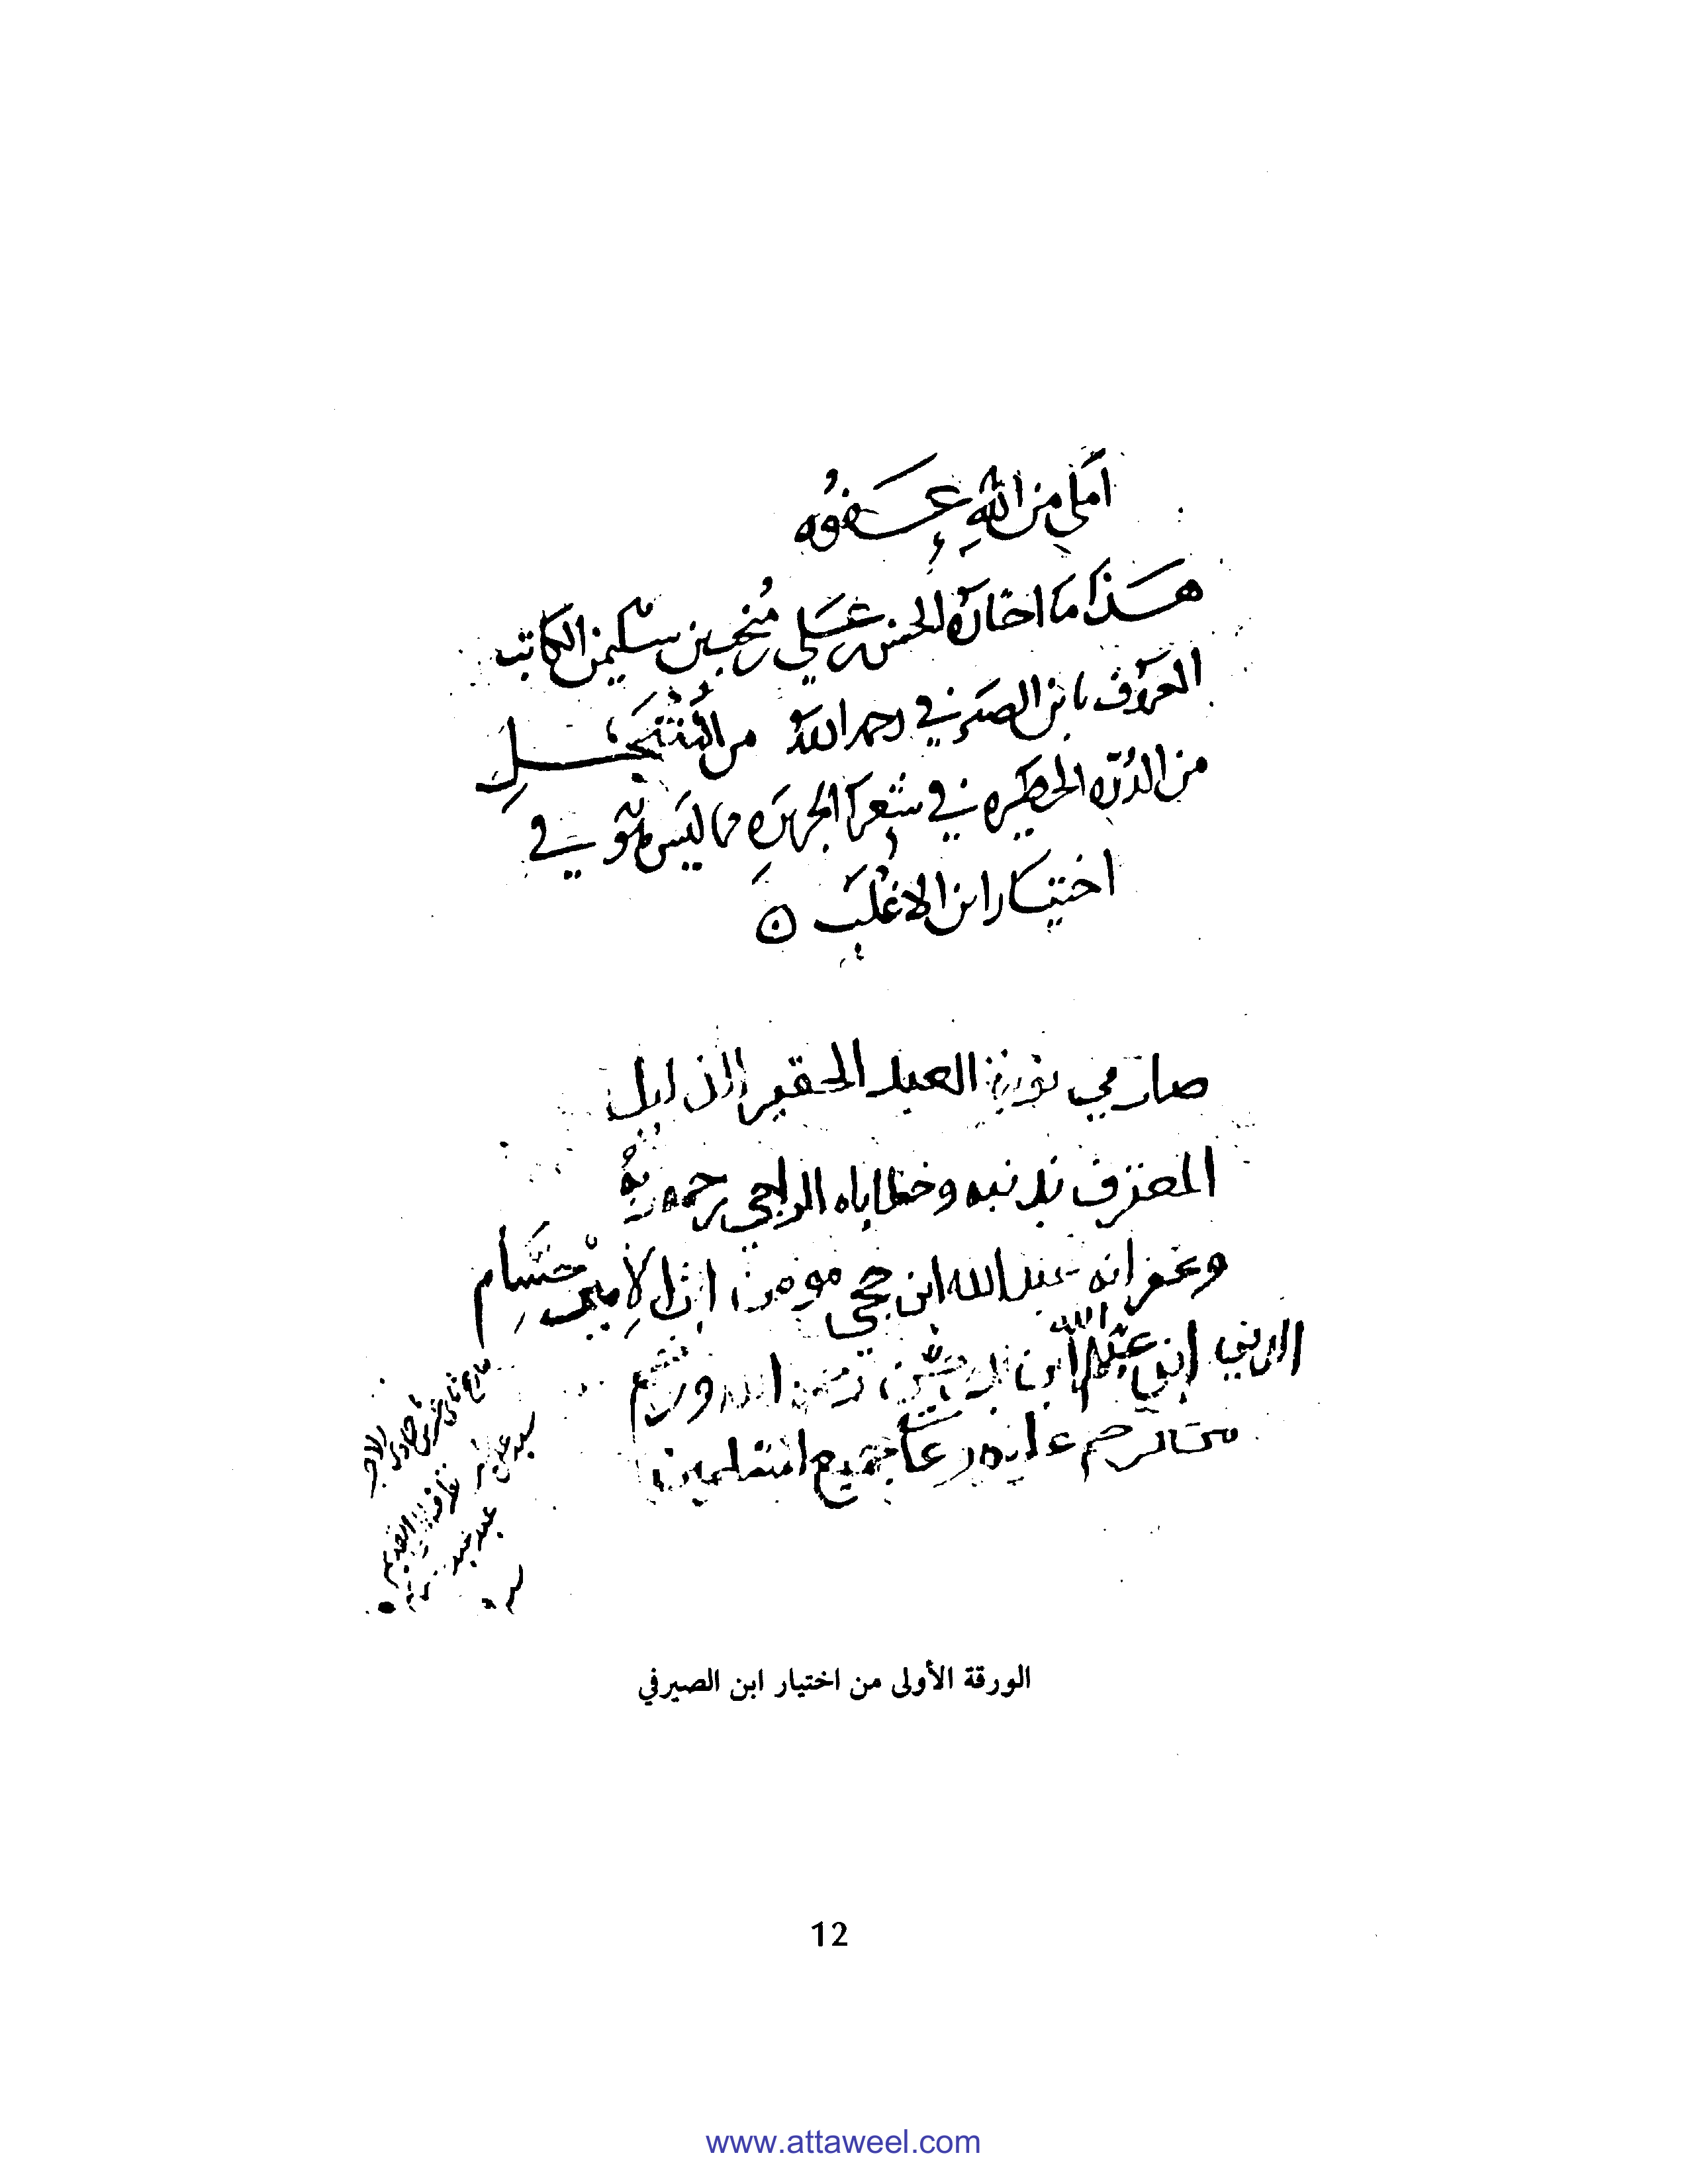 أملي من الله عفوه
هذا ما اختاره ابو الحسن علي بن منجب بن سليمن الكاتب
المعروف بابن الصيرفي رحمه الله من المنتخل
من الدرة الخطيرة في شعرا الجزيرة مما ليس هو في
اختيار ابن الاغلب
صار في نوبة العبد الحقير الذليل
المعترف بذنبه وخطاياه الراجي رحمة ربه
وغفرانه عبد الله ابن حجي مومن ابن الأمير حسام
الدين ابن عبد الله ابن
من ترحم عليه وعلى جميع المسلمين
الورقة الأولى من اختيار ابن الصيرفي
12
www.attaweel.com